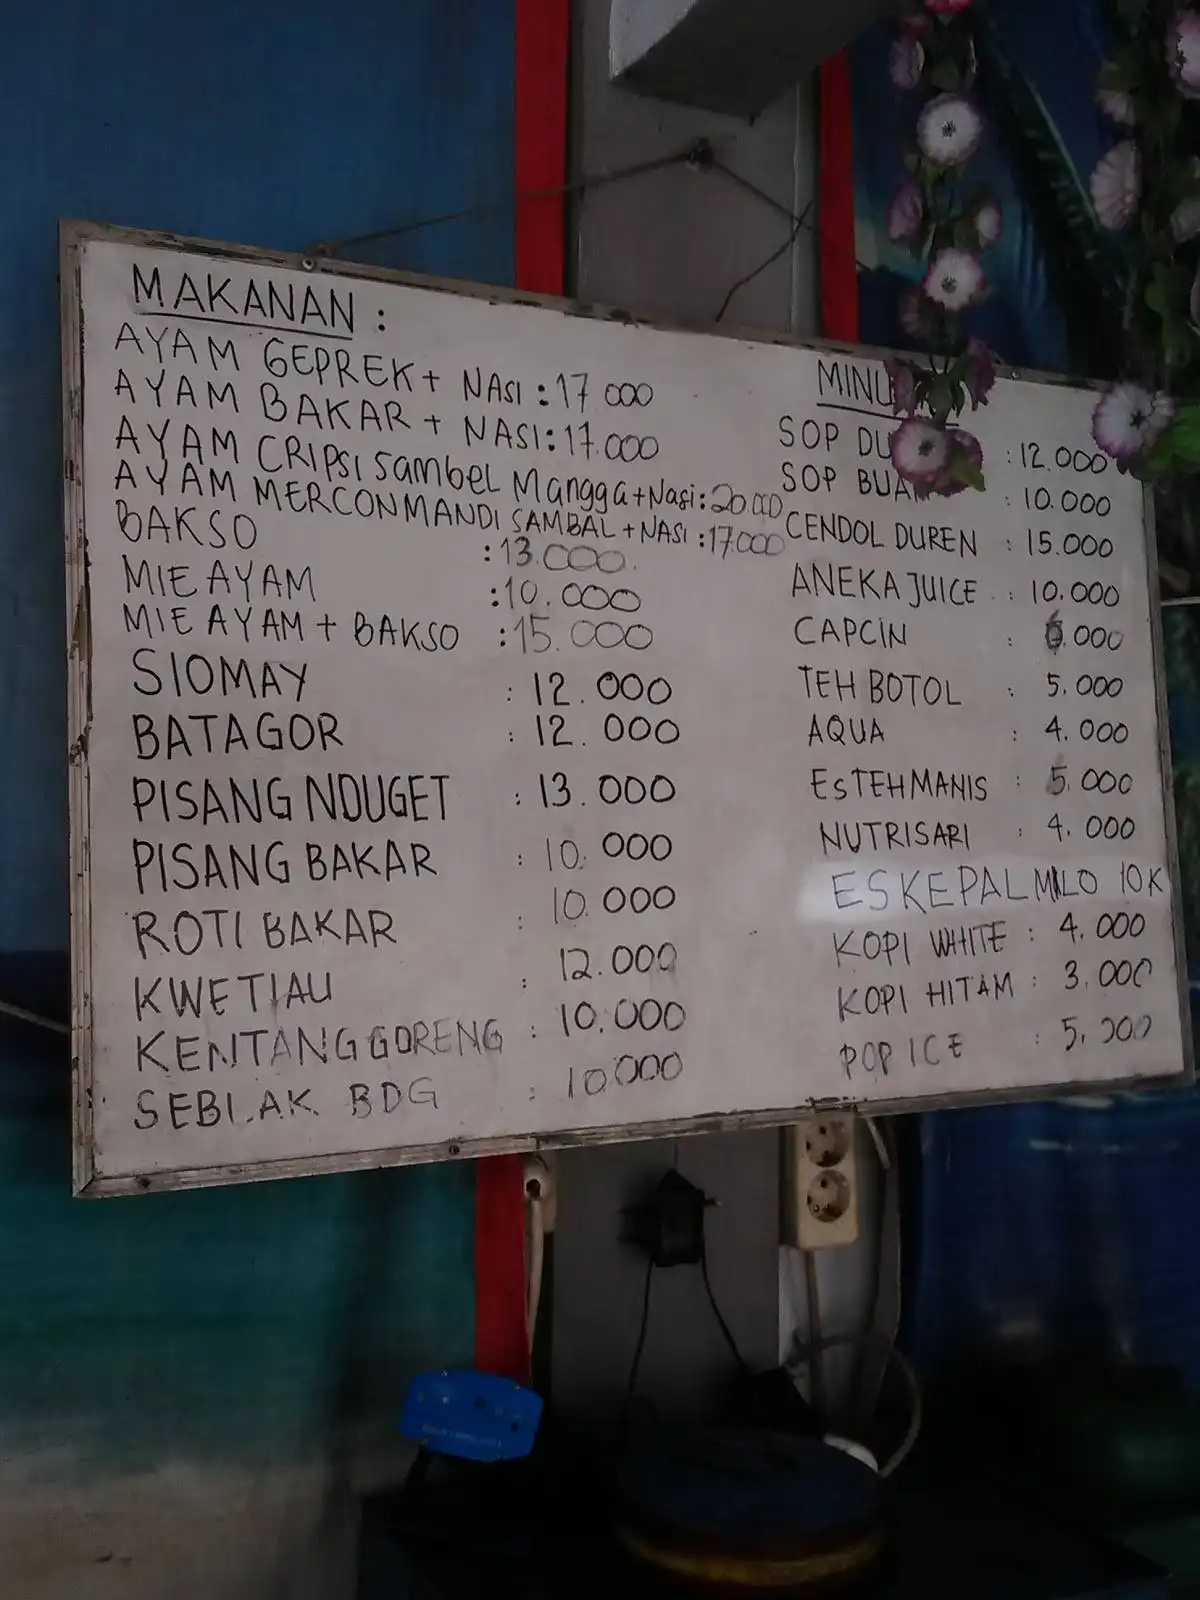 MAKANAN :
AYAM GEPREK + NASI : 17 000
AYAM BAKAR + NASI : 17.000
AYAM CRIPSI sambel Mangga + Nasi : 20.000
AYAM MERCON MANDI SAMBAL + NASI : 17.000
BAKSO : 13.000.
MIE AYAM : 10.000
MIE AYAM + BAKSO : 15.000
SIOMAY : 12.000
BATAGOR : 12.000
PISANG NOUGET : 13.000
PISANG BAKAR : 10.000
ROTI BAKAR : 10.000
KWETIAU : 12.000
KENTANG GORENG : 10.000
SEBLAK BDG : 10.000
MINU
SOP DU : 12.000
SOP BUAH : 10.000
CENDOL DUREN : 15.000
ANEKA JUICE : 10.000
CAPCIN : 6.000
TEH BOTOL : 5.000
AQUA : 4.000
ES TEH MANIS : 5.000
NUTRISARI : 4.000
ES KEPAL MILO 10K
KOPI WHITE : 4.000
KOPI HITAM : 3.000
POP ICE : 5.000